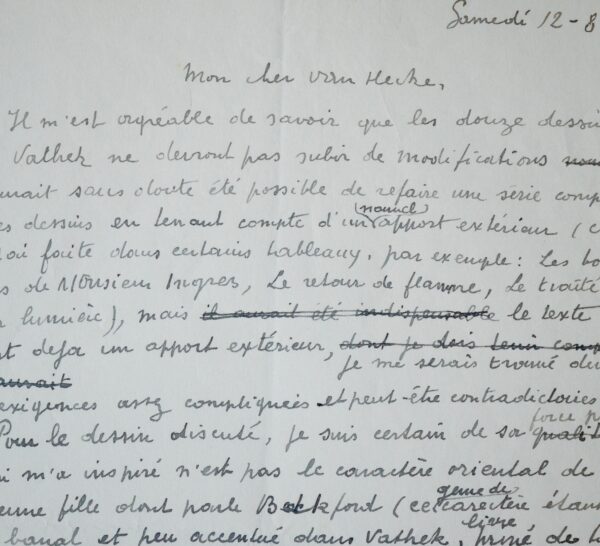 Samedi 12-8
Mon cher Van Hecke,
Il m'est agréable de savoir que les douze dessin
Vathek ne devront pas subir de modifications
urait sans doute été possible de refaire une série comp
es dessins en tenant compte d'un nouvel apport extérieur (c
ai faite dans certains tableaux, par exemple : Les bo
s de Monsieur Ingres, Le retour de flamme, Le traité
lumière), mais il aurait été indispensable le texte
t deja un apport extérieur, dont je dois tenir comp
aurait
je me serais trouvé de
exigences assez compliquées et peut-être contradictoires
force p
Pour le dessin discuté, je suis certain de sa qualit
i m'a inspiré n'est pas le caractère oriental de
genre de
eune fille dont parle Beckford (ce caractère étan
livre
banal et peu accentué dans Vathek, privé de l